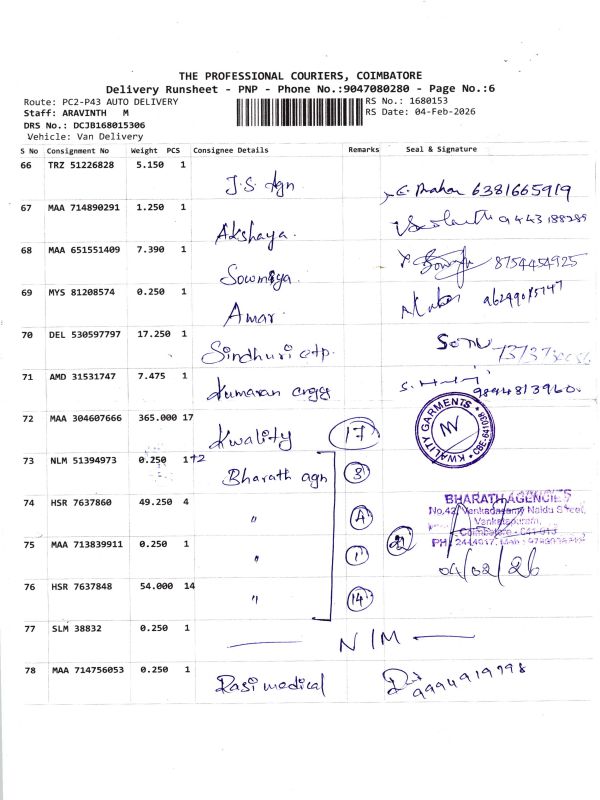 THE PROFESSIONAL COURIERS, COIMBATORE
Delivery Runsheet - PNP - Phone No.:9047080280 - Page No.:6
Route: PC2-P43 AUTO DELIVERY
RS No.: 1680153
Staff: ARAVINTH M
RS Date: 04-Feb-2026
DRS No.: DCJB168015306
Vehicle: Van Delivery
S No Consignment No Weight PCS Consignee Details Remarks Seal & Signature
66 TRZ 51226828 5.150 1 J.S. Agn 6381665919
67 MAA 714890291 1.250 1 Akshaya. 9443188285
68 MAA 651551409 7.390 1 Sowmiya. 8754454925
69 MYS 81208574 0.250 1 Amar.
70 DEL 530597797 17.250 1 Sindhuri
71 AMD 31531747 7.475 1 Kumaran 9894813960.
72 MAA 304607666 365.000 17 Kwality 17 KWALITY GARMENTS
73 NLM 51394973 0.250 1+2 Bharath agn 3
74 HSR 7637860 49.250 4 " 4
BHARATH AGENCIES
No,42, Venkadasamy Naidu Street,
75 MAA 713839911 0.250 1 " 1 22
Coimbatore - 641 015
04/02/26
76 HSR 7637848 54.000 14 " 14
77 SLM 38832 0.250 1 N/M
78 MAA 714756053 0.250 1 Rasi medical 9994919998